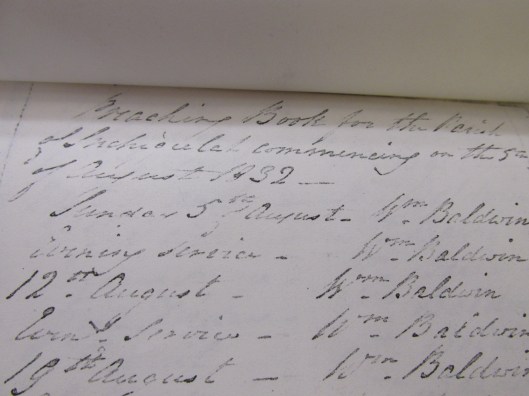 Preaching Book for the Parish
of Inchigeelah commencing on the 5th
of August 1832 —
Sunday 5th of August - Wm Baldwin
Evening Service - Wm Baldwin
12th August - Wm Baldwin
Eveng Service - Wm Baldwin
19th August - Wm Baldwin